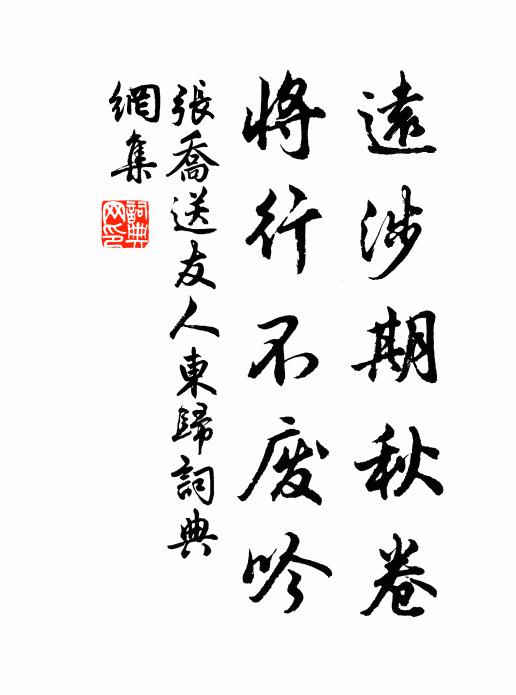 遠涉期秋卷
將行不废吟
張喬送友人東歸詞典
網集
詞典
网印